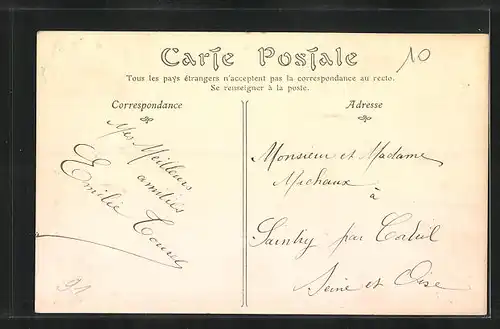 Carte Postale
10
Tous les pays étrangers n'acceptent pas la correspondance au recto.
Se renseigner à la poste.
Correspondance
Mes Meilleurs
amitiés
Emilie
Adresse
Monsieur et Madame
Michaux
à
Saintry par Corbeil
Seine et Oise